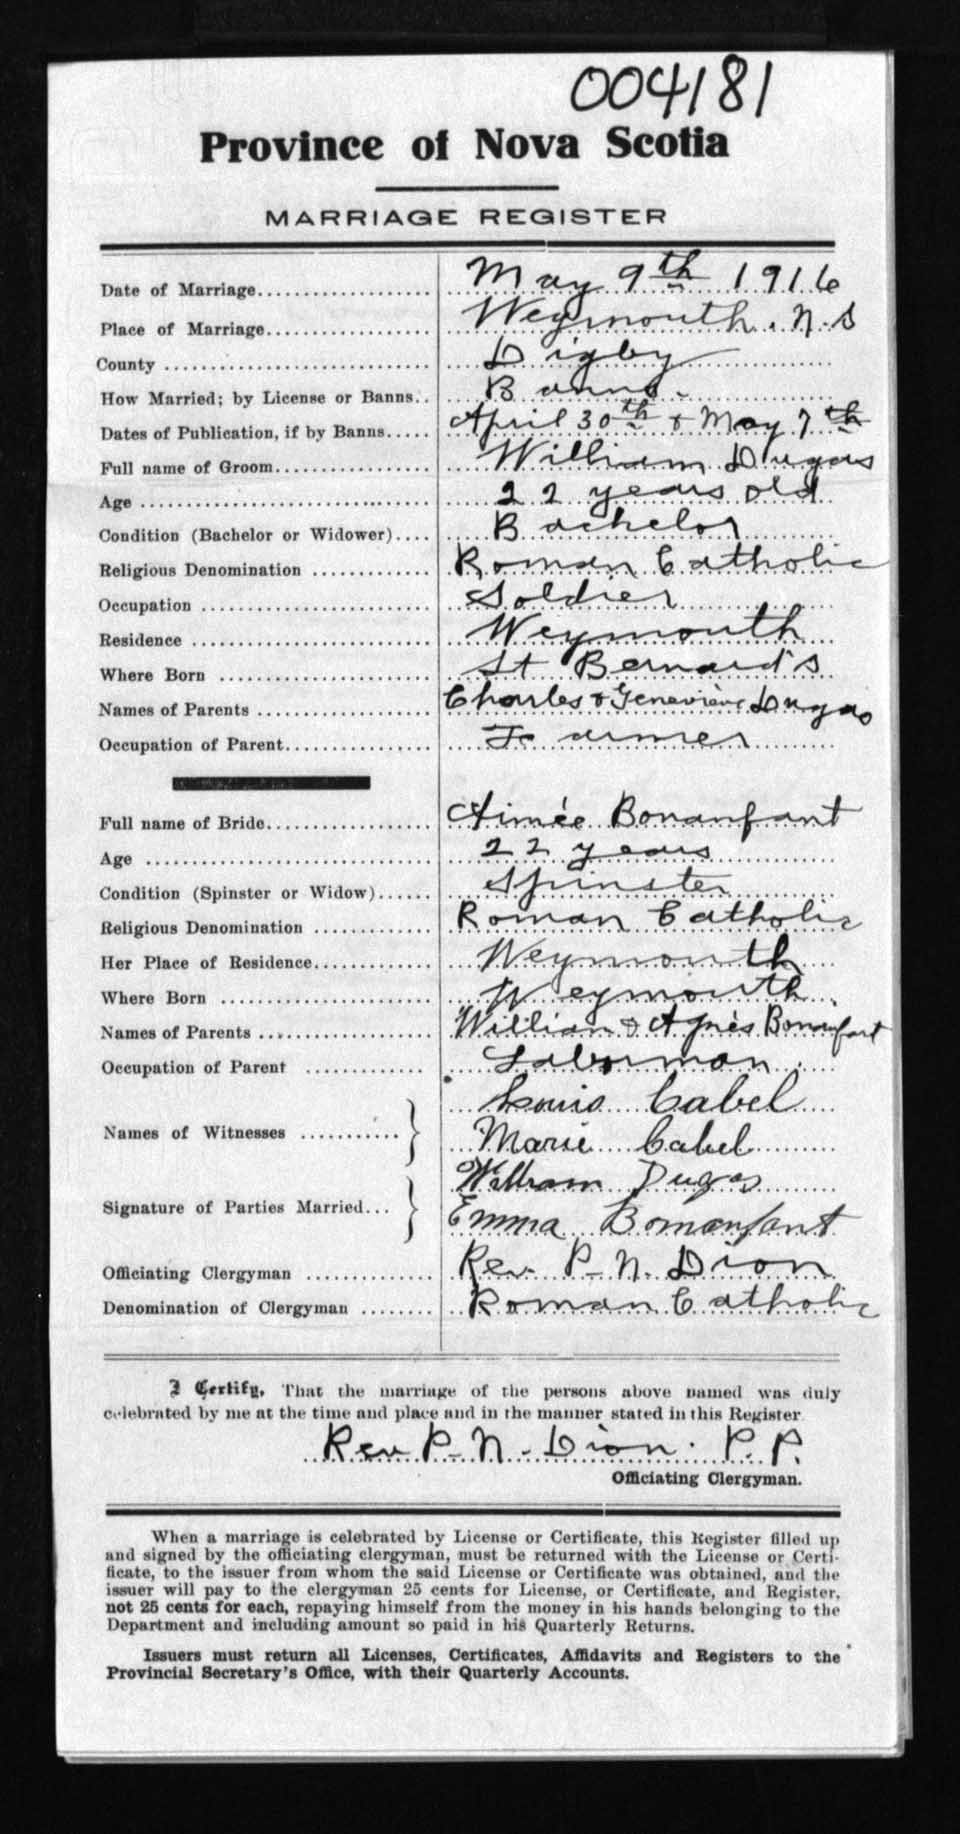 004181
Province of Nova Scotia
MARRIAGE REGISTER
Date of Marriage.................... May 9th 1916
Place of Marriage.................. Weymouth. N.S
County .............................. Digby
How Married; by License or Banns.. Banns.
Dates of Publication, if by Banns..... April 30th & May 7th
Full name of Groom.................. William Dugas
Age ................................. 22 years old
Condition (Bachelor or Widower).... Bachelor
Religious Denomination ............. Roman Catholic
Occupation .......................... Soldier
Residence ........................... Weymouth
Where Born ......................... St Bernard's
Names of Parents ................... Charles & Geneviève Dugas
Occupation of Parent................ Farmer
Full name of Bride.................. Aimée Bonanfant
Age ................................. 22 years
Condition (Spinster or Widow)...... Spinster
Religious Denomination ............. Roman Catholic
Her Place of Residence............. Weymouth
Where Born ......................... Weymouth.
Names of Parents ................... William & Agnès Bonanfant
Occupation of Parent ............. Laborman
Louis Cabel
Names of Witnesses ............ Marie Cabel
William Dugas
Signature of Parties Married... Emma Bomanfant
Officiating Clergyman .............. Rev. P-N. Dion
Denomination of Clergyman ........ Roman Catholic
I Certify, That the marriage of the persons above named was duly
celebrated by me at the time and place and in the manner stated in this Register
Rev. P-N-Dion. P.P.
Officiating Clergyman.
When a marriage is celebrated by License or Certificate, this Register filled up
and signed by the officiating clergyman, must be returned with the License or Certi-
ficate, to the issuer from whom the said License or Certificate was obtained, and the
issuer will pay to the clergyman 25 cents for License, or Certificate, and Register,
not 25 cents for each, repaying himself from the money in his hands belonging to the
Department and including amount so paid in his Quarterly Returns.
Issuers must return all Licenses, Certificates, Affidavits and Registers to the
Provincial Secretary's Office, with their Quarterly Accounts.